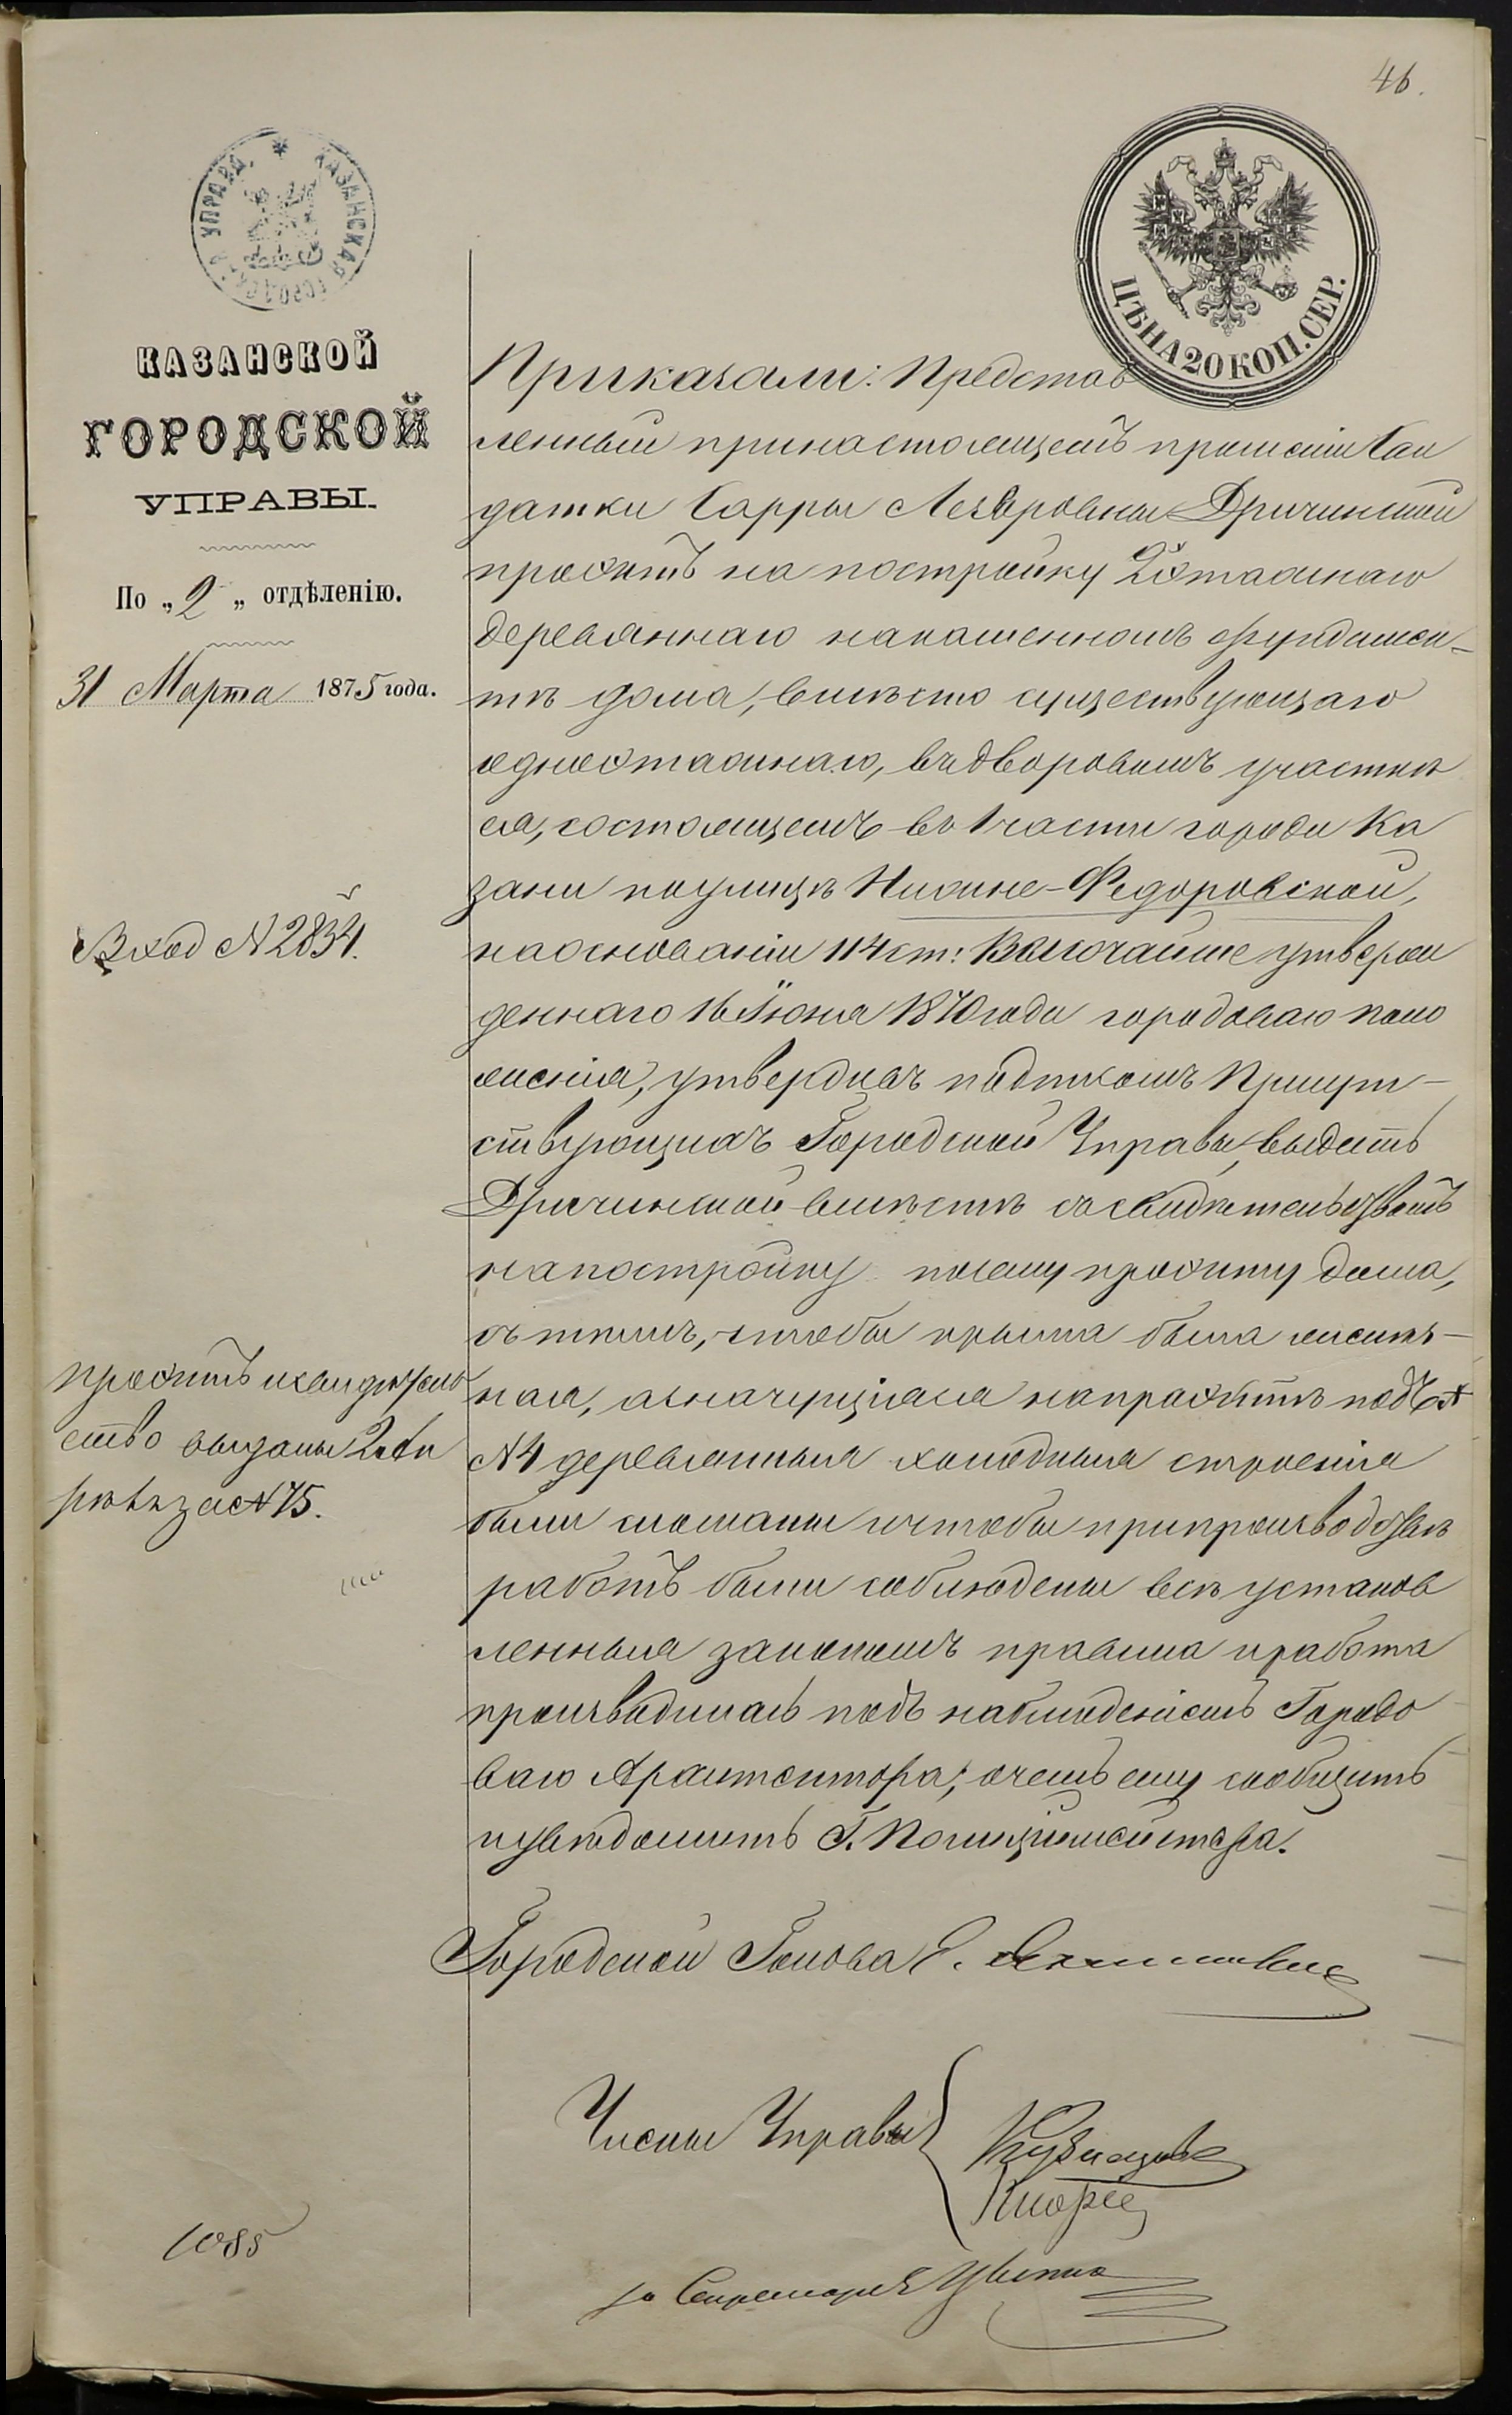 46.
КАЗАНСКАЯ ГОРОДСКАЯ УПРАВА
ЦѢНА 20 КОП. СЕР.
КАЗАНСКОЙ
ГОРОДСКОЙ
УПРАВЫ.
По „2„ отдѣленію.
31 Марта 1875 года.
Вход №2834.
проэктъ и свидѣтель
ство выданы 2 Ап
рѣля за №75.
1085
Приказали: Представ
ленный при настоящемъ прошеніи Сол
датки Сарры Лезеровны Дричинской
проэктъ на постройку 2хэтажнаго
деревяннаго на каменномъ фундамен-
тѣ дома, вмѣсто существующаго
одноэтажнаго, въ дворовомъ участкѣ
ея, состоящемъ въ 1 части города Ка
зани по улицѣ Нижне-Федоровской,
на основаніи 114 ст: Высочайше утверж
деннаго 16 Іюня 1870 года городоваго поло
женія, утвердивъ подписомъ Присут-
ствующихъ Городской Управы, выдать
Дричинской вмѣстѣ съ свидѣтельствомъ
на постройку по сему проэкту дома,
съ тѣмъ, чтобы крыша была желѣз-
ная, а значущіяся на проэктѣ подъ
№4 деревянныя холодныя строенія
были сломаны и чтобы при производствѣ
работъ были соблюдены всѣ установ
ленныя закономъ правила и работа
производилась подъ наблюденіемъ Городо
ваго Архитектора; о чемъ ему сообщить
и увѣдомить Г. Полиціймейстера.
Городской Голова
Члены Управы
Кузнецовъ
за Секретаря